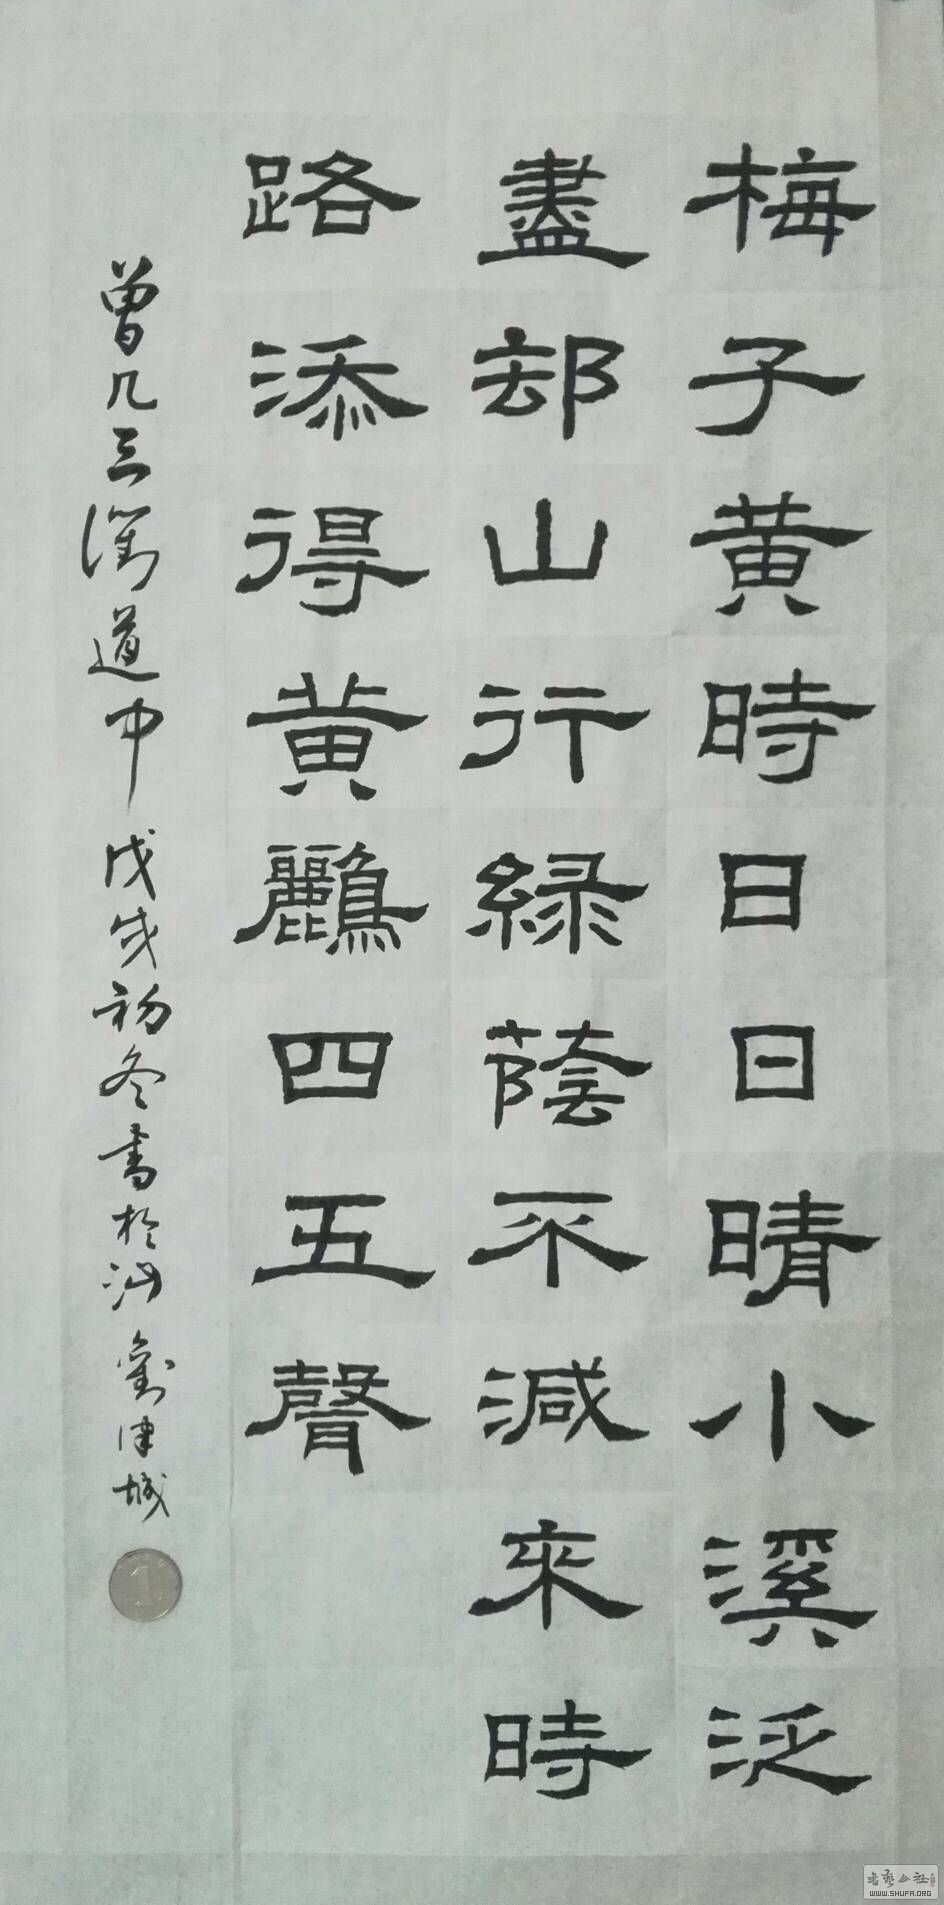 梅子黄時日日晴小溪泛
盡却山行緑蔭不減來時
路添得黄鸝四五聲
曾几三衢道中 戊戌初冬書於汕 劉津城
1
書藝公社
WWW.SHUFA.ORG